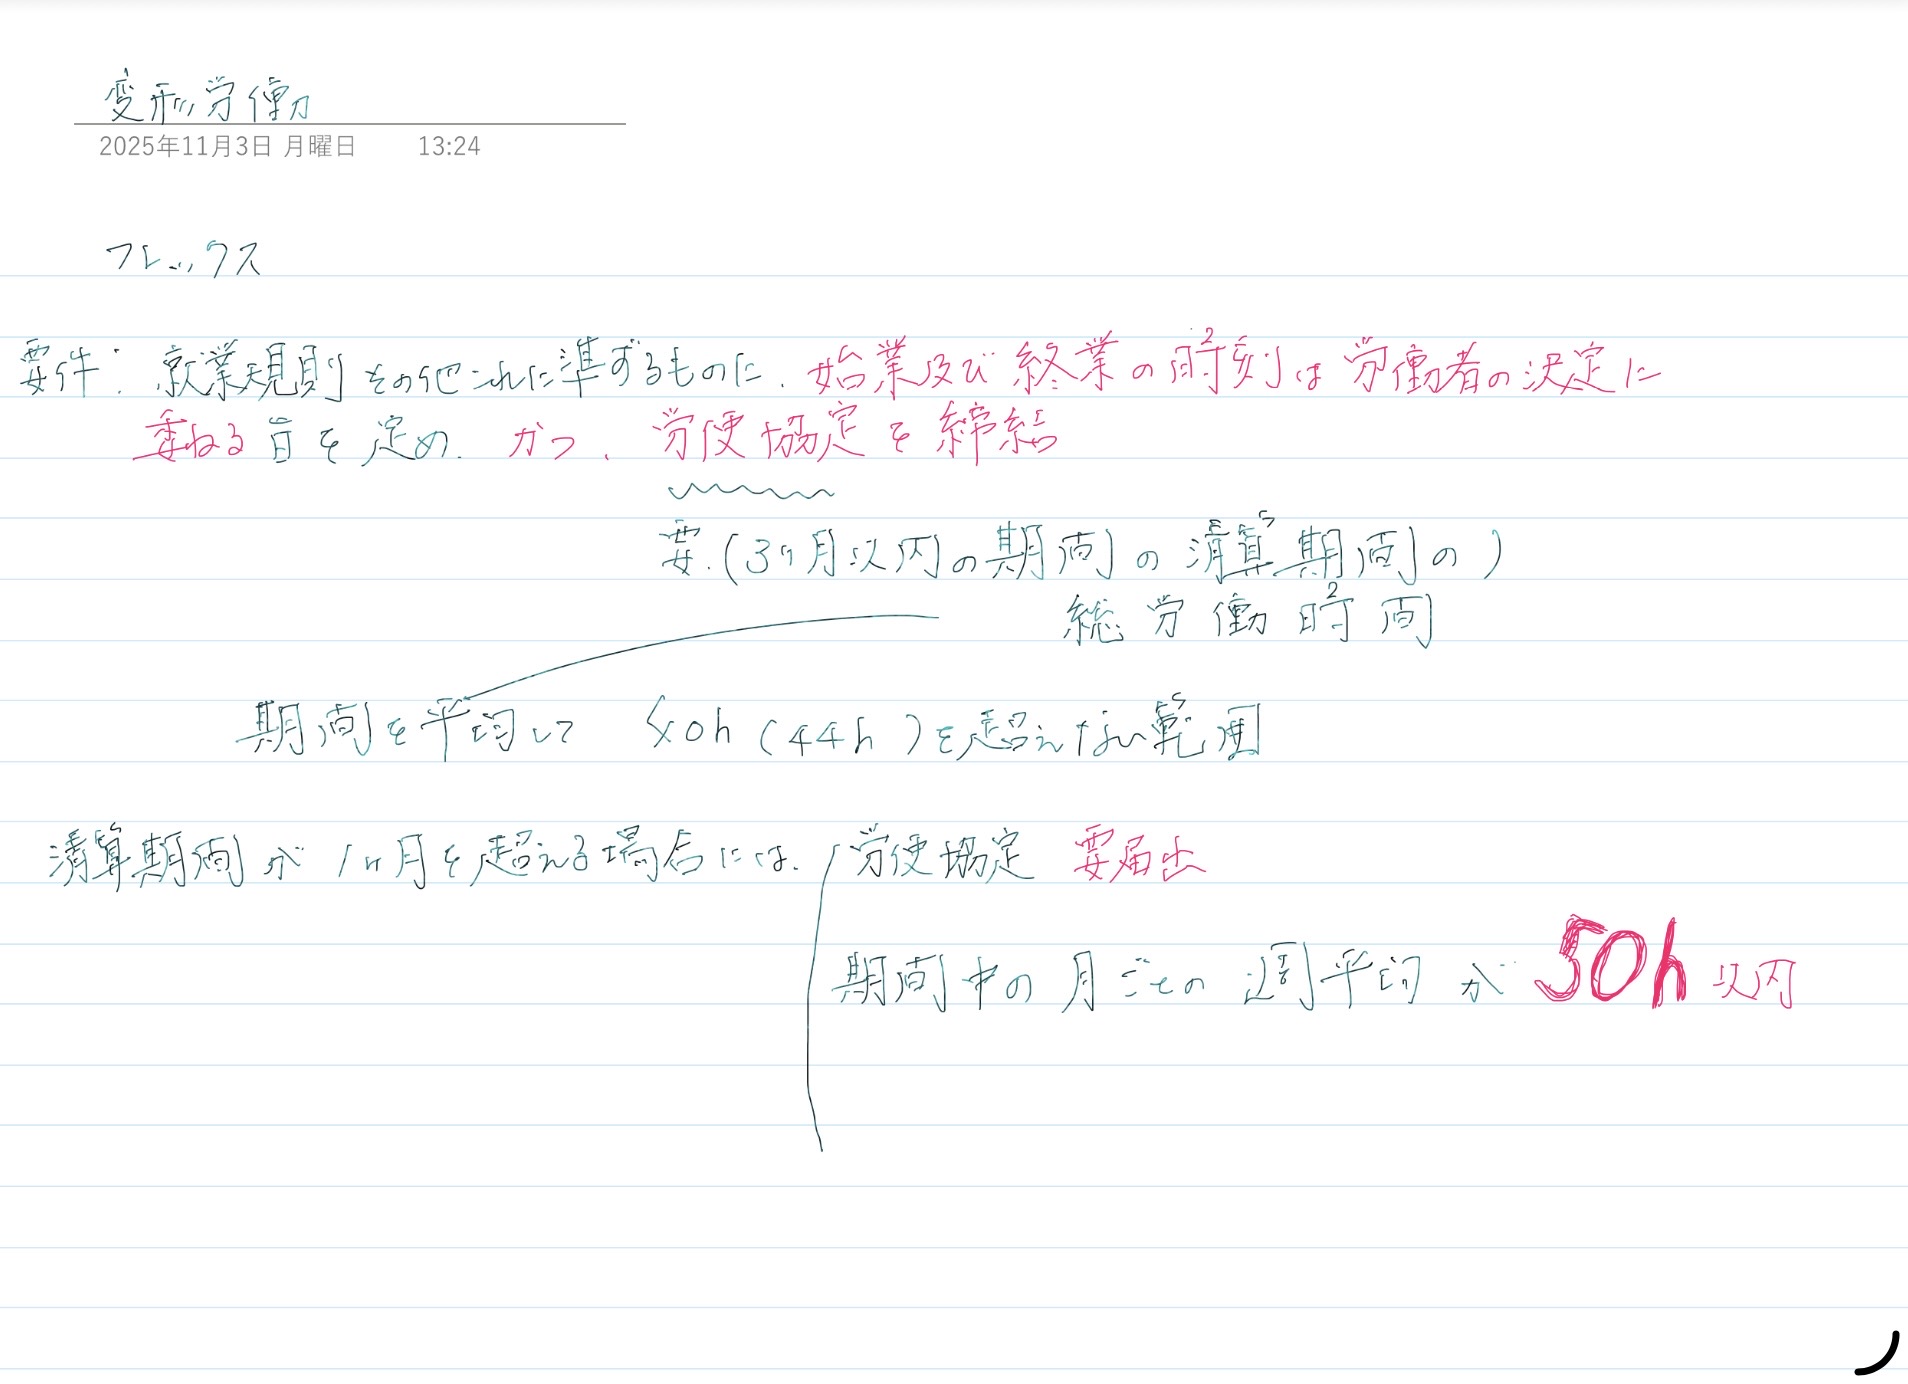 変形労働
2025年11月3日 月曜日 13:24
フレックス
要件：就業規則その他これに準ずるものに、始業及び終業の時刻は労働者の決定に
委ねる旨を定め、かつ、労使協定を締結
要.(3ヶ月以内の期間の清算期間の)
総労働時間
期間を平均して 40h(44h)を超えない範囲
清算期間が1ヶ月を超える場合には、労使協定 要届出
期間中の月ごとの週平均が50h以内